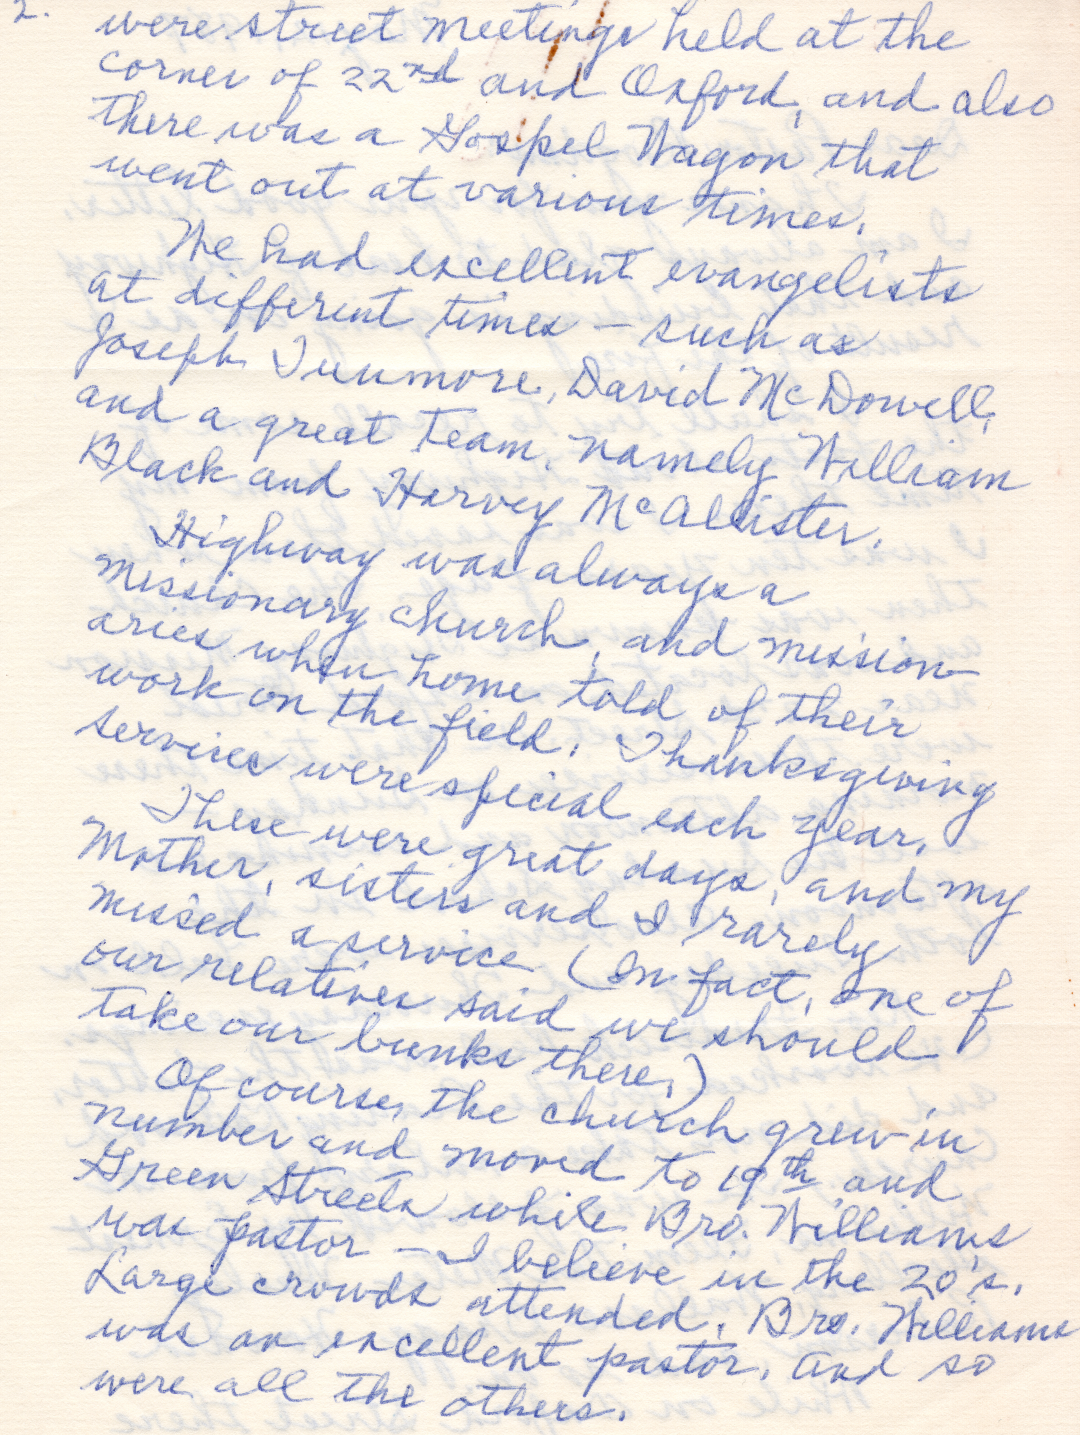 2.
were street meetings held at the
corner of 22nd and Oxford, and also
there was a Gospel Wagon that
went out at various times.
We had excellent evangelists
at different times – such as
Joseph Dunmore, David McDowell,
and a great Team, namely William
Black and Harvey McAllister.
Highway was always a
missionary church, and mission-
aries when home told of their
work on the field. Thanksgiving
services were special each year.
These were great days, and my
Mother, sisters and I rarely
missed a service (In fact, one of
our relatives said we should
take our bunks there.)
Of course, the church grew in
number and moved to 19th and
Green Streets while Bro. Williams
was pastor – I believe in the 20's.
Large crowds attended. Bro. Williams
was an excellent pastor, and so
were all the others.